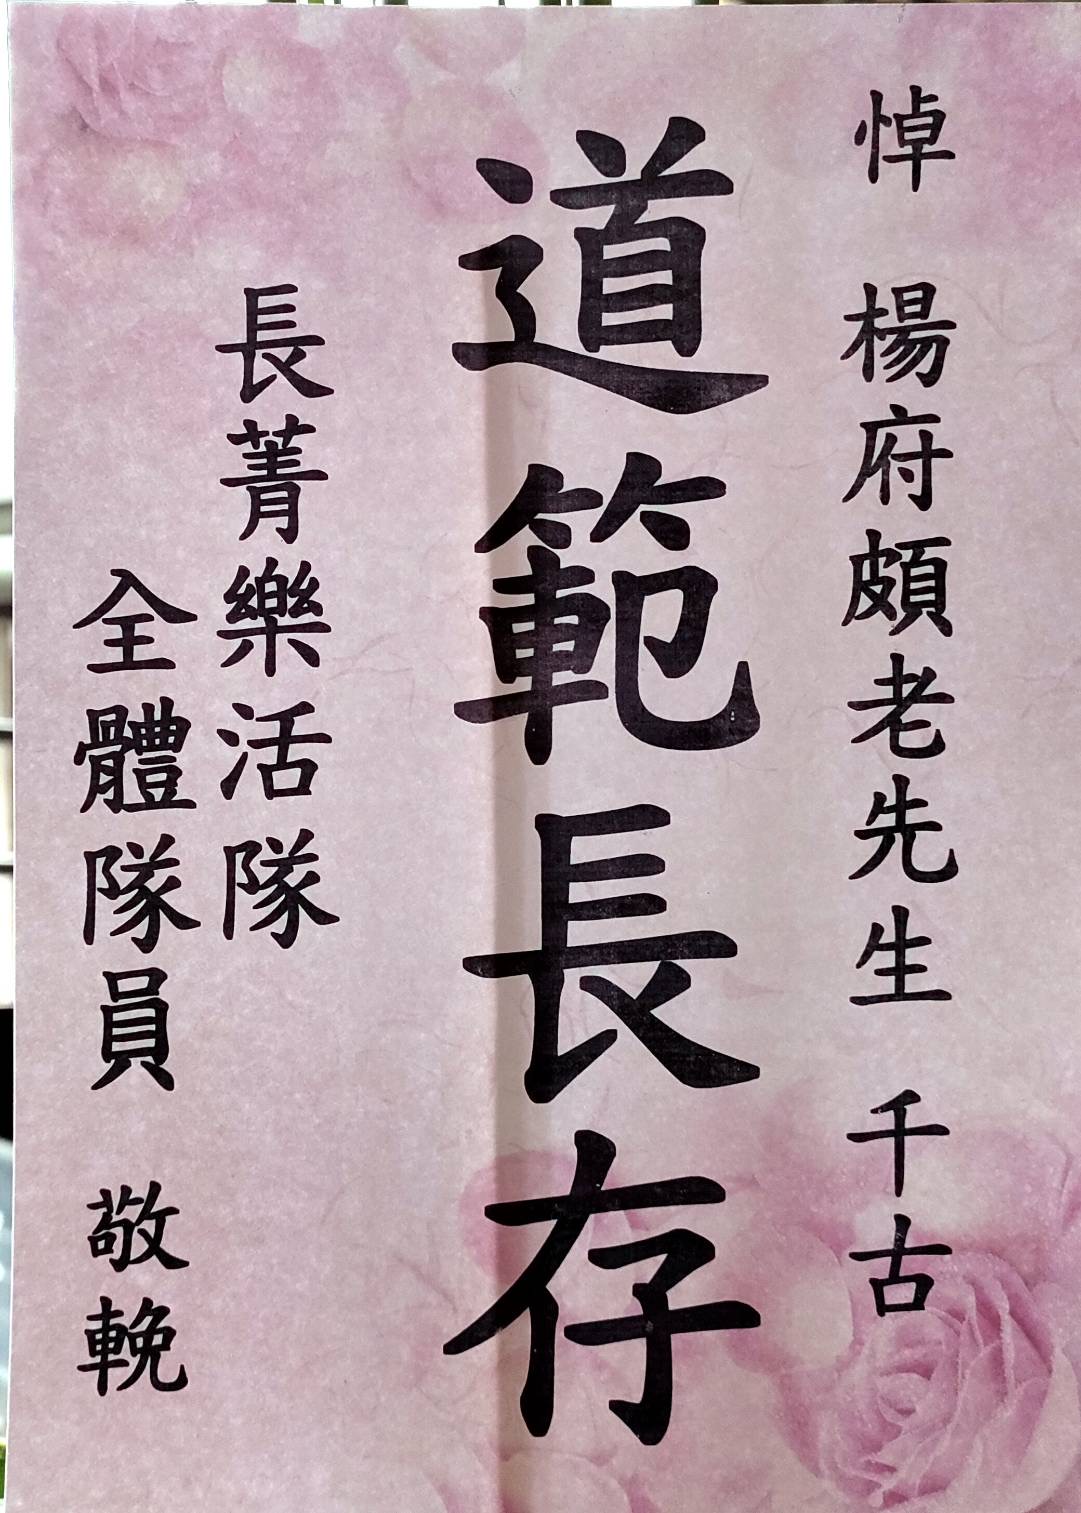 悼 楊府頗老先生 千古
道範長存
長菁樂活隊
全體隊員 敬輓